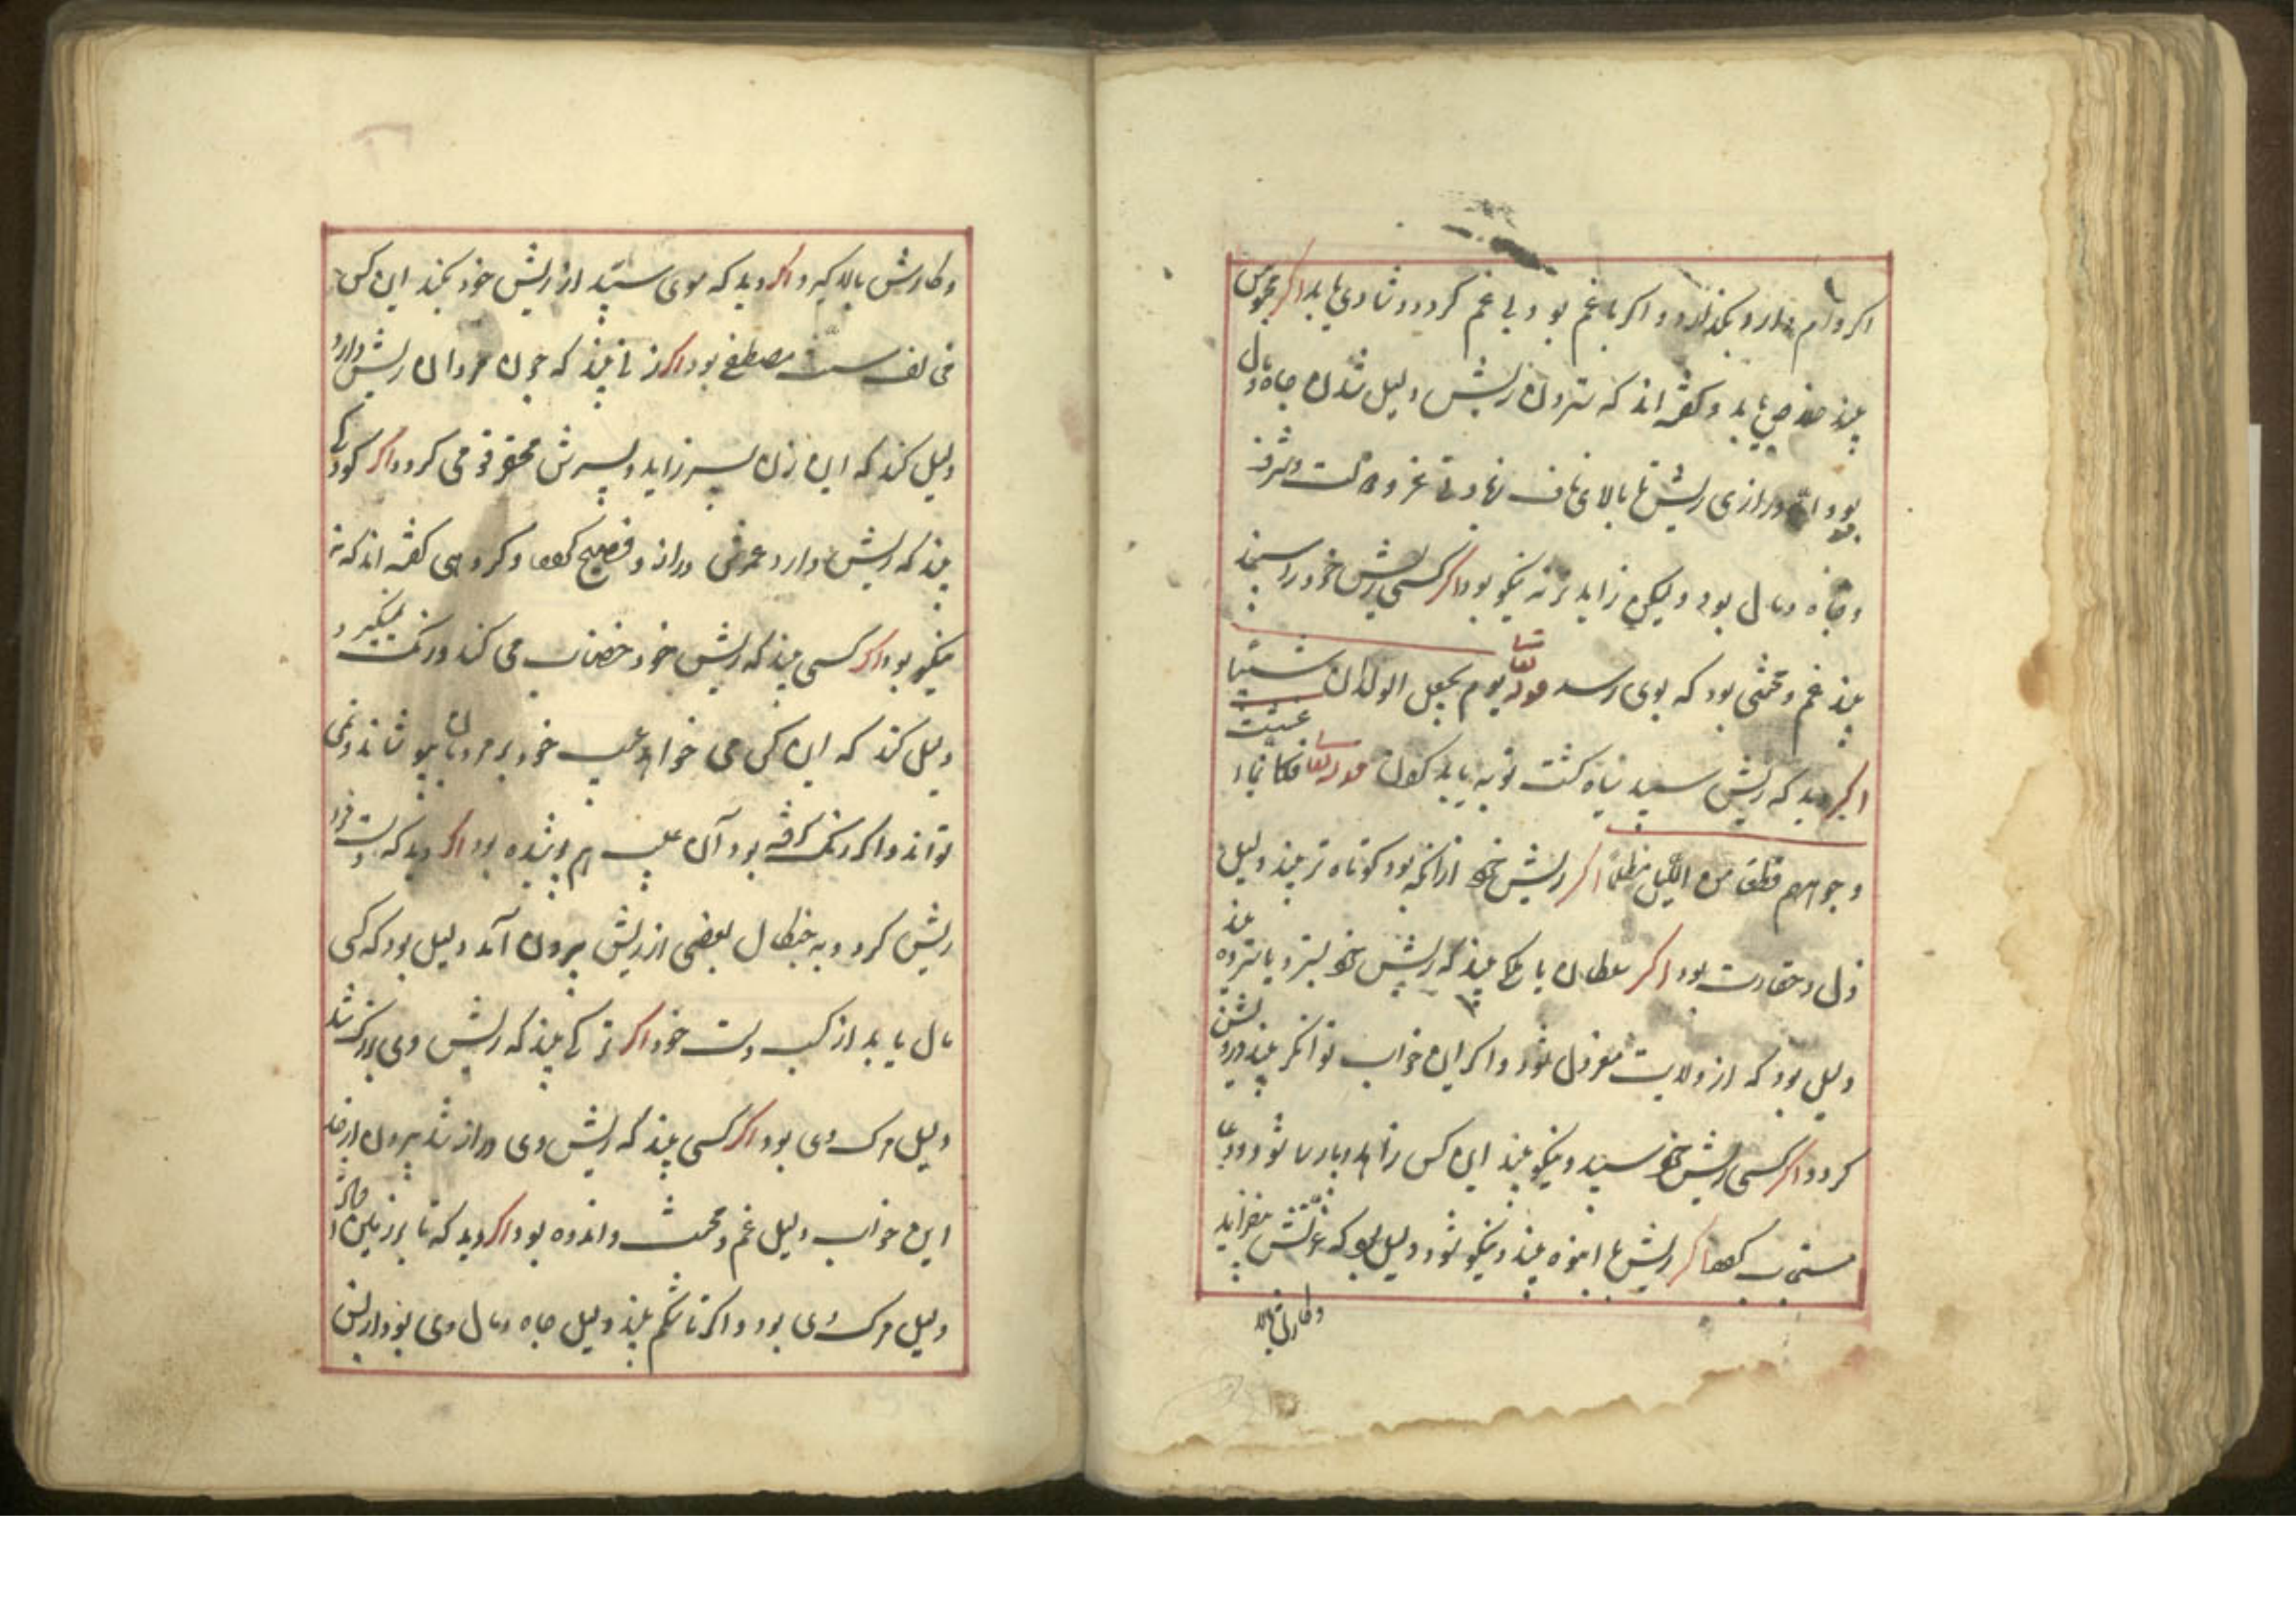 اکر وام دارد بکذارد و اکر با غم بود بی غم کردد و شادی یابد اکر محبوس
بیند خلاص یابد و کفته اند که ستردن ریش دلیل شدن جاه و مال
بود و اکر درازی ریش تا بالای ناف نهادی عز و و شرف
و جاه و مال بود و لیکن زاید تر نه نیکو بود اکر کسی ریش خود را سپید
بیند غم و محنتی بود که بوی رسد قوله تعالی یوم یجعل الولدان شیبا
اکر دید که ریش سپید سیاه کشت توبه باید کردن قوله تعالی فکانما اغشیت
وجوههم قطعا من اللیل مظلما اکر ریش خود ازانکه بود کوتاه تر بیند دلیل
ذل و حقارت بود اکر سلطان یا ملک بیند که ریش خود بسترد یا سترده بیند
دلیل بود که از ولایت معزول شود و اکر این خواب توانکر بیند درویش
کردد اکر کسی ریش خود سپید و نیکو بیند این کس زاهد و پارسا شود و دعای
مستجاب اکر ریش ها انبوه بیند و نیکو شود دلیل بود که عزتش بیفزاید
وکارش بالا
وکارش بالا کیرد اکر دید که موی سپید از ریش خود بکند این کس
مخالف سنت مصطفی بود اکر زنی بیند که چون مردان ریش دارد
دلیل کند که این زن پسر زاید و پسرش محتشم قومی کردد اکر کودکی
بیند که ریش دارد عمرش دراز و فصیح و کروهی کفته اند که نه
نیکو بود اکر کسی بیند که ریش خود خضاب می کند و رنک نمیکیرد
دلیل کند که این کس می خواهد عیب خود بر مردمان بپوشاند و نمی
تواند و اکر رنک کرفته بود آن عیب هم پوشیده بود اکر دید که دست فرا
ریش کرد و به خلال بعضی از ریش بیرون آمد دلیل بود که کسی
مال یابد از کسب دست خود اکر ترکی بیند که ریش وی بزرک شد
دلیل مرک وی بود اکر کسی بیند که ریش وی دراز شد بیرون از حد
این خواب دلیل غم و محنت و اندوه بود اکر دید که تا بر زمین
دلیل مرک وی بود و اکر تا شکم بیند دلیل جاه و مال وی بود ازیش